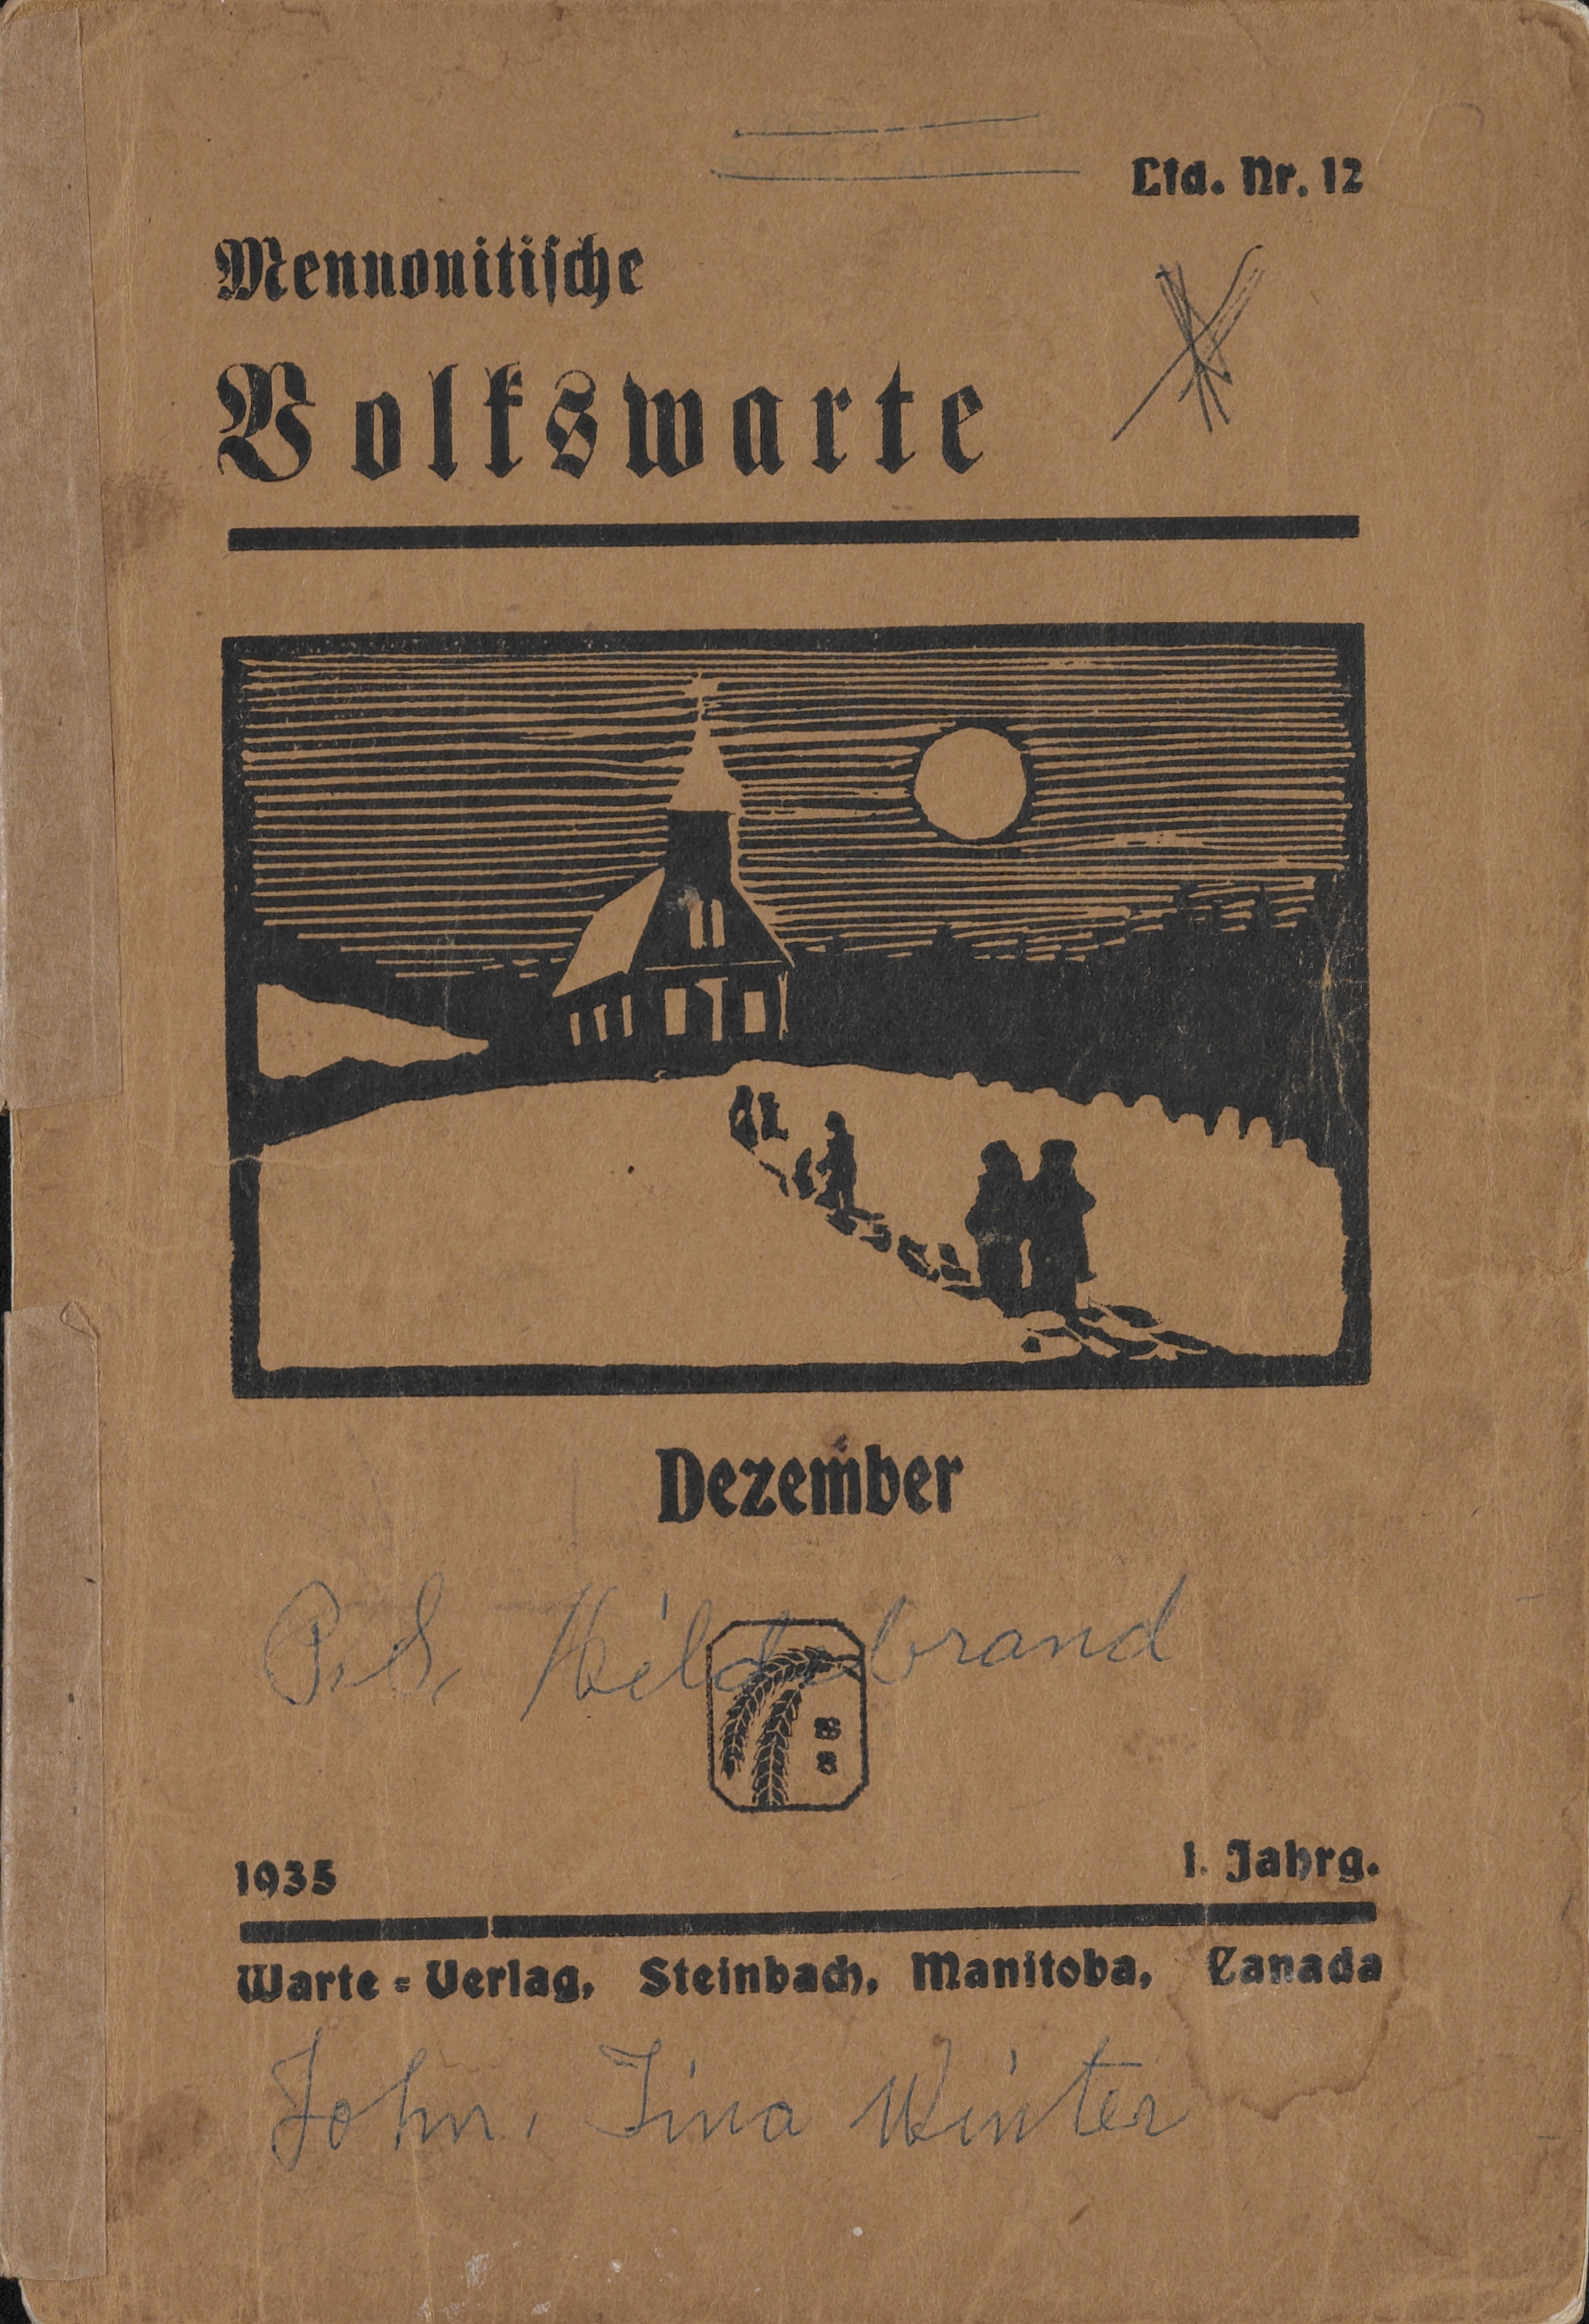 Lfd. Nr. 12
Mennonitische
Volkswarte
Dezember
P. S. Hildebrand
1935
1. Jahrg.
Warte-Verlag, Steinbach, Manitoba, Canada
John, Tina Winter